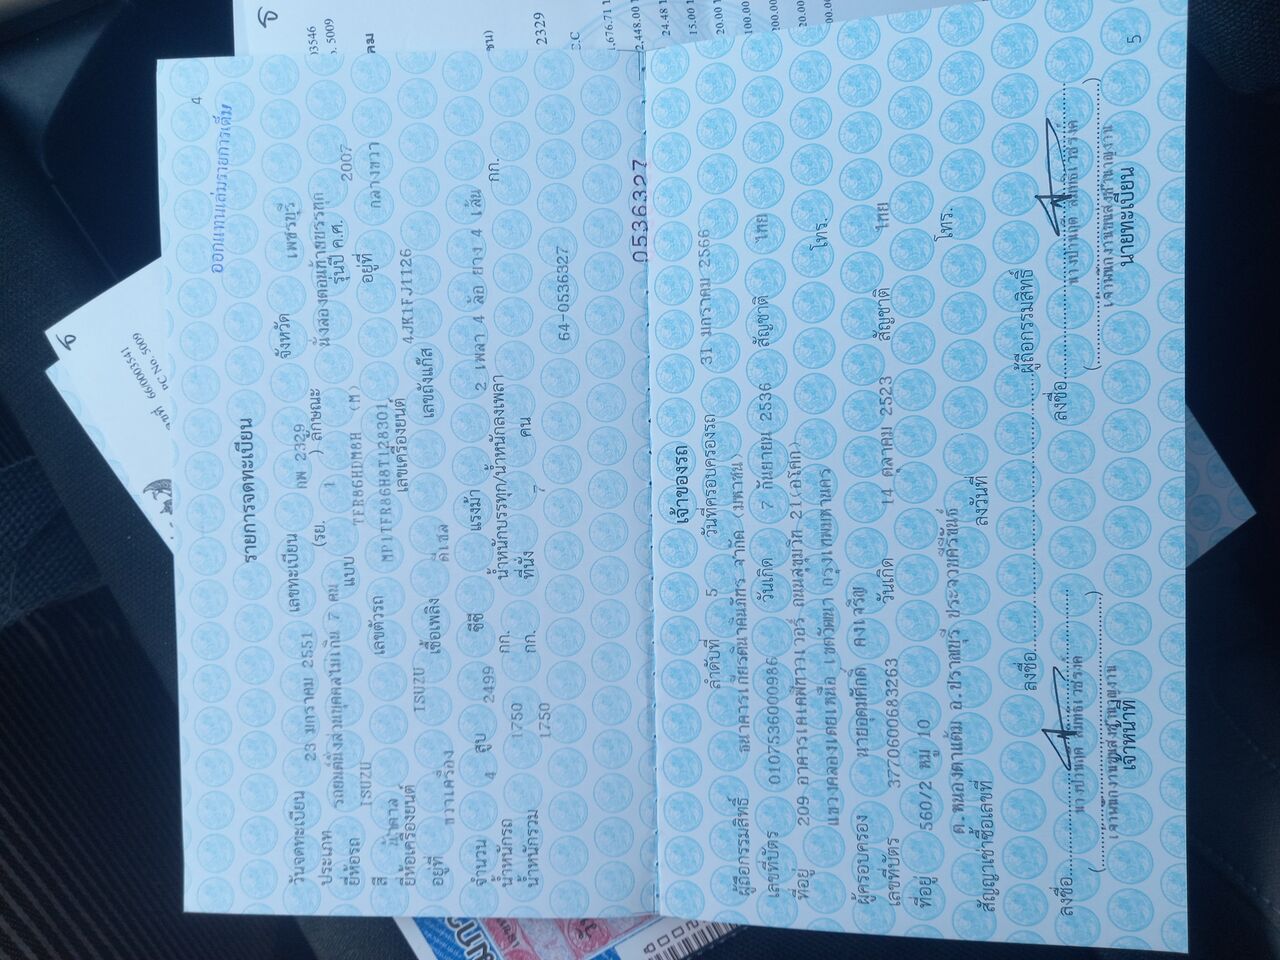 4
ออกแทนเล่มรายการเต็ม
รายการจดทะเบียน
วันจดทะเบียน 23 มกราคม 2551 เลขทะเบียน กพ 2329 จังหวัด เพชรบุรี
ประเภท รถยนต์นั่งส่วนบุคคลไม่เกิน 7 คน (รย. 1 ) ลักษณะ นั่งสองตอนท้ายบรรทุก
ยี่ห้อรถ ISUZU แบบ TFR86HDM8H (M) รุ่นปี ค.ศ. 2007
สี น้ำตาล เลขตัวรถ MP1TFR86H8T128301 อยู่ที่ กลางขวา
ยี่ห้อเครื่องยนต์ ISUZU เลขเครื่องยนต์ 4JK1FJ1126
อยู่ที่ ขวาเครื่อง เชื้อเพลิง ดีเซล เลขถังแก๊ส
จำนวน 4 สูบ 2499 ซีซี แรงม้า 2 เพลา 4 ล้อ ยาง 4 เส้น
น้ำหนักรถ 1750 กก. น้ำหนักบรรทุก/น้ำหนักลงเพลา กก.
น้ำหนักรวม 1750 กก. ที่นั่ง 7 คน
64-0536327
0536327
เจ้าของรถ
ลำดับที่ 5 วันที่ครอบครองรถ 31 มกราคม 2566
ผู้ถือกรรมสิทธิ์ ธนาคารเกียรตินาคินภัทร จำกัด (มหาชน)
เลขที่บัตร 0107536000986 วันเกิด 7 กันยายน 2536 สัญชาติ ไทย
ที่อยู่ 209 อาคารเคเคพีทาวเวอร์ ถนนสุขุมวิท 21(อโศก)
แขวงคลองเตยเหนือ เขตวัฒนา กรุงเทพมหานคร โทร.
ผู้ครอบครอง นายอุดมศักดิ์ คงเจริญ
เลขที่บัตร 3770600683263 วันเกิด 14 ตุลาคม 2523 สัญชาติ ไทย
ที่อยู่ 560/2 หมู่ 10
ต.หนองตาแต้ม อ.ปราณบุรี ประจวบคีรีขันธ์ โทร.
สัญญาเช่าซื้อเลขที่ ลงวันที่
ลงชื่อ ผู้ถือกรรมสิทธิ์
ลงชื่อ ลงชื่อ
เจ้าพนักงานขนส่งชำนาญงาน เจ้าพนักงานขนส่งชำนาญงาน
เจ้าหน้าที่ นายทะเบียน
5
03546
5009
2329
1,676.71
2,448.00
24.48
15.00
20.00
100.00
20.00
เลขที่ 66/0003541
PC No. 5009